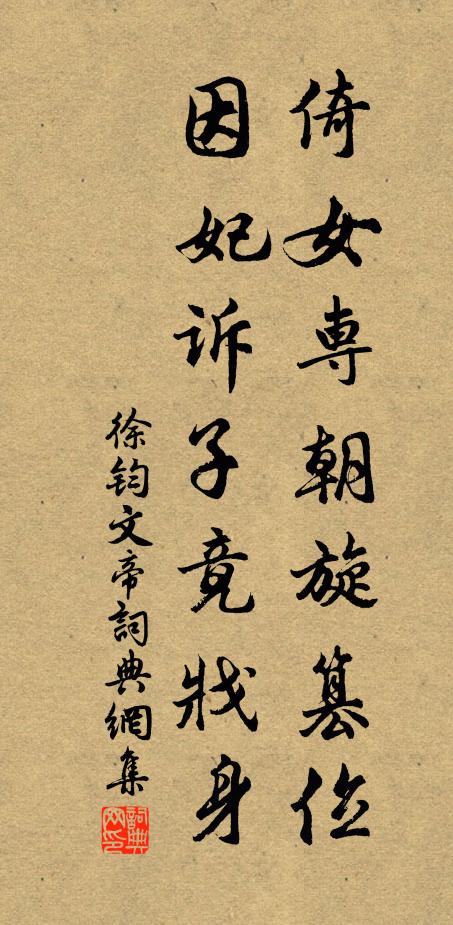 倚女専朝旋篡位
因妃诉子竟戕身
徐钧文帝詞典網集